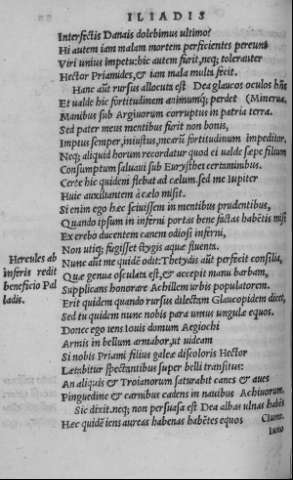 ILIADIS
Interfectis Danais dolebimus ultimo?
Hi autem iam malam mortem perficientes pereunt
Viri unius impetu: hic autem furit, neq; toleranter
Hector Priamides, & iam mala multa fecit.
Hanc aūt rursus allocuta est Dea glaucos oculos hn̄s
Et ualde hic fortitudinem animumq; perdet (Minerua,
Manibus sub Argiuorum corruptus in patria terra.
Sed pater meus mentibus furit non bonis,
Impius semper, iniustus, mearū fortitudinum impeditor,
Neq; aliquid horum recordatur quod ei ualde sæpe filium
Consumptum saluaui sub Eurysthei certaminibus.
Certe hic quidem flebat ad cœlum. sed me Iupiter
Huic auxiliantem à cœlo misit.
Si enim ego hæc sciuissem in mentibus prudentibus,
Quando ipsum in inferni portas bene factas habētis misi
Ex erebo ducentem canem odiosi inferni,
Non utiq; fugisset stygis aquæ fluenta.
Hercules ab
inferis redit
beneficio Pal
ladis.
Nunc aūt me quidē odit: Thetydis aūt perfecit consilia,
Quæ genua osculata est, & accepit manu barbam,
Supplicans honorare Achillem urbis populatorem.
Erit quidem quando rursus dilectam Glaucopidem dicet,
Sed tu quidem nunc nobis para unius ungulæ equos.
Donec ego iens Iouis domum Aegiochi
Armis in bellum armabor, ut uideam
Si nobis Priami filius galeæ discoloris Hector
Lætabitur spectantibus super belli transitus:
An aliquis & Troianorum saturabit canes & aues
Pinguedine & carnibus cadens in nauibus Achiuorum.
Sic dixit. neq; non persuasa est Dea albas ulnas habēs
Hæc quidē iens aureas habenas habētes equos
Iuno